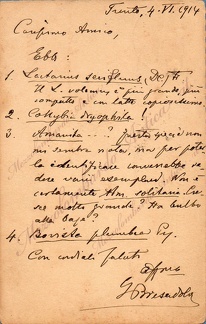 Trento, 4. VI. 1914
Carissimo Amico,
Ebbi:
1. Lactarius
L. volemus è più grande, più
e con latte copiosissimo.
2. Collybia dryophila!
3. Amanita ..? questa specie non
mi sembra nota, ma per poter-
la identificare converrebbe
dere vari esemplari. Non è
certamente Am. solitaria. Cre-
sce molto grande? Ha bulbo
alla base?
4. Bovista plumbea
Con cordiali saluti
Affmo
G Bresadola